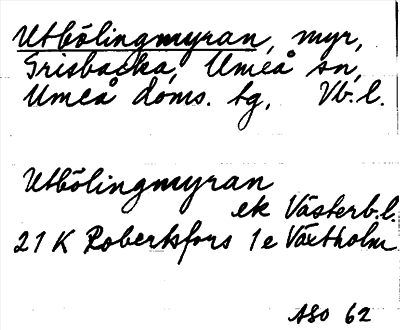 Utbölingmyran, myr,
Grisbacka, Umeå sn,
Umeå doms. tg, Vb.l.
Utbölingmyran
ek Västerb.l.
21 K Robertsfors 1 e Växtholm
ASO 62